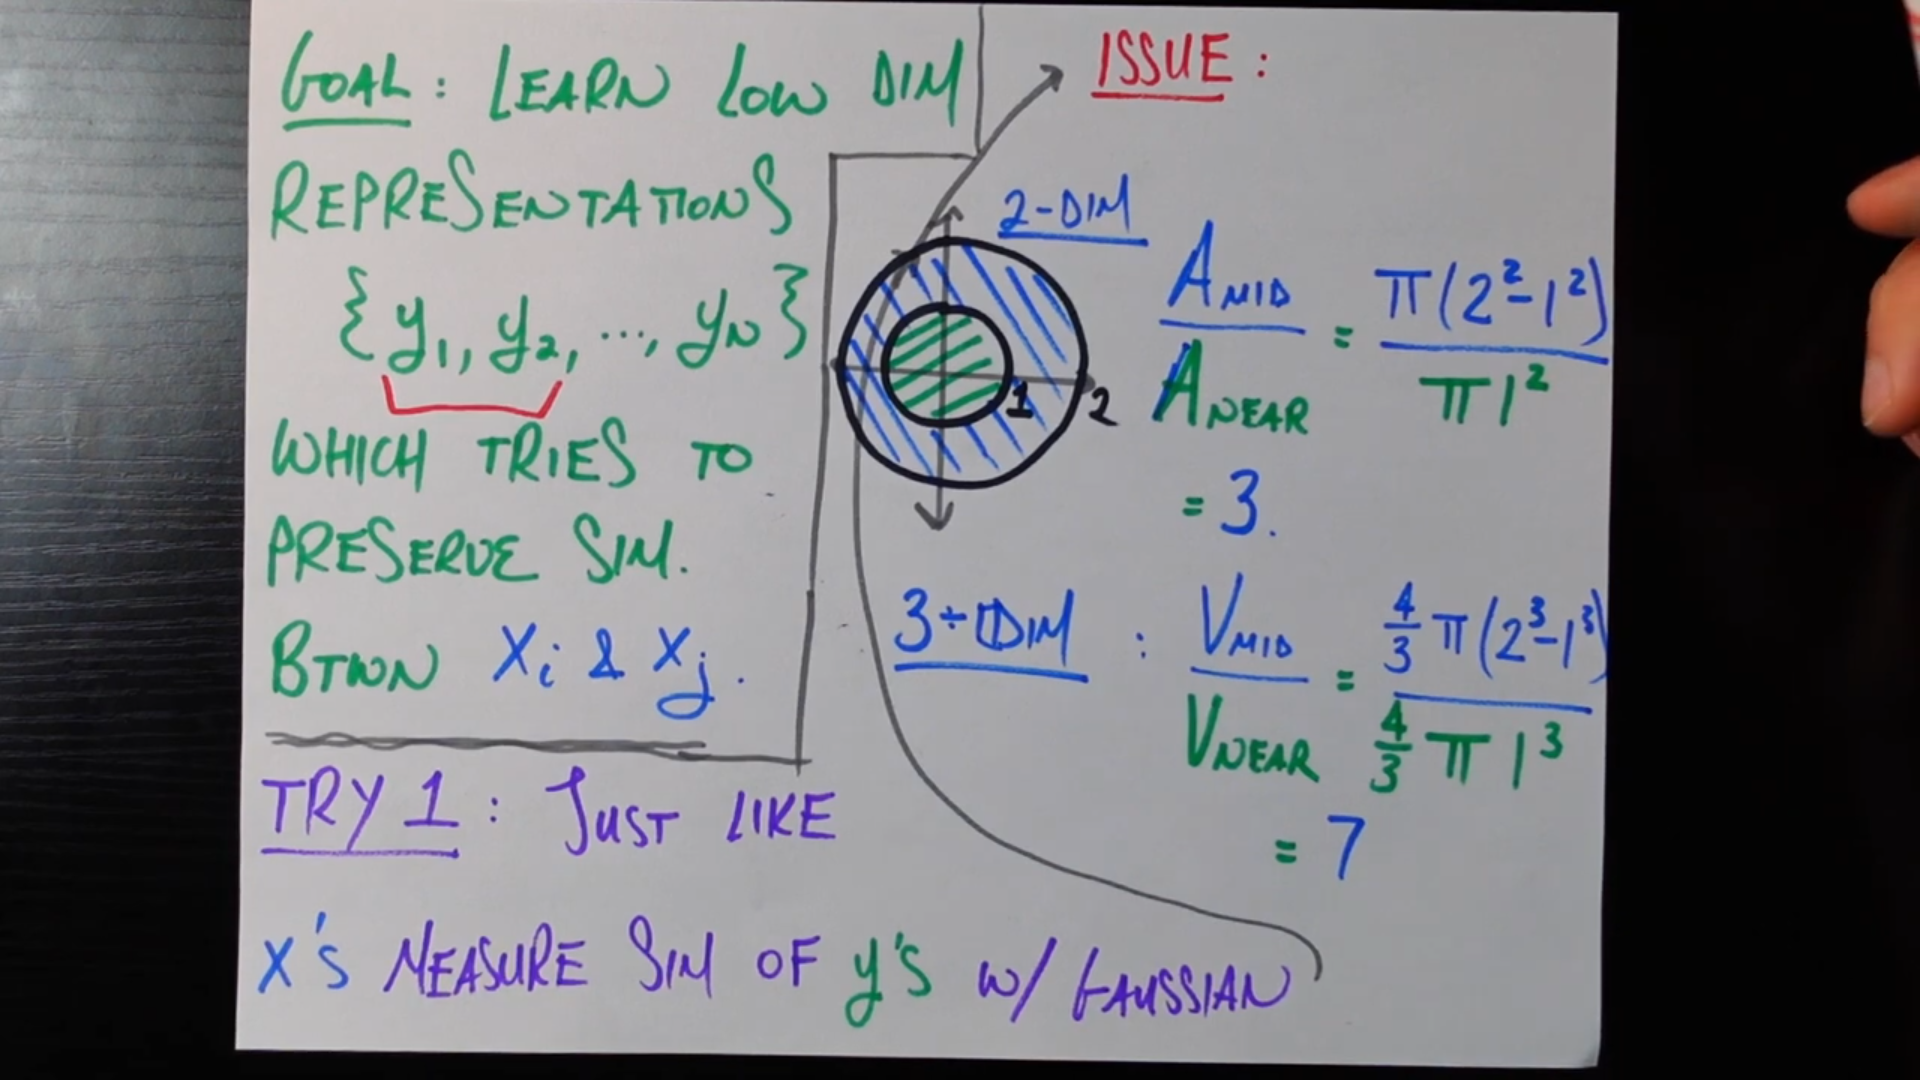 GOAL: LEARN LOW DIM
REPRESENTATIONS
{y₁, y₂, ..., yN}
WHICH TRIES TO
PRESERVE SIM.
BTWN Xi & Xj.
TRY 1: JUST LIKE
X'S MEASURE SIM OF y'S W/ GAUSSIAN
ISSUE:
2-DIM
1 2
AMID / ANEAR = π(2²-1²) / π1²
= 3.
3-DIM : VMID / VNEAR = 4/3 π(2³-1³) / 4/3 π1³
= 7